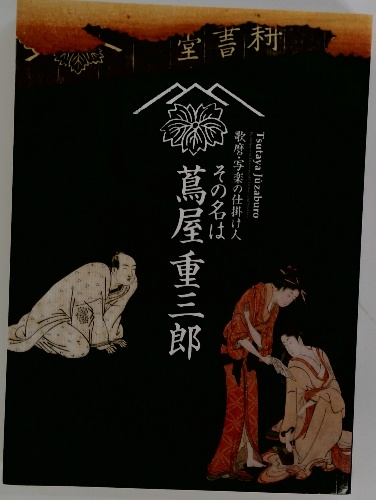 耕書堂
Tsutaya Jūzaburo
歌麿・写楽の仕掛け人
その名は
蔦屋重三郎